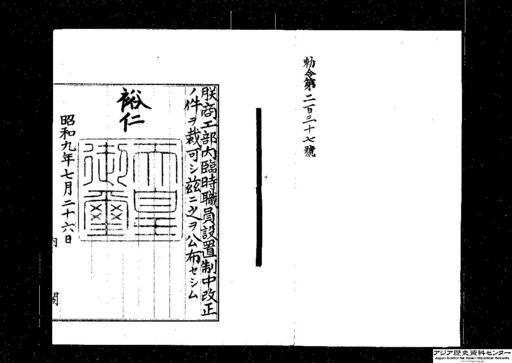 勅令第二百三十七號
朕商工部内臨時職員設置制中改正
ノ件ヲ裁可シ茲ニ之ヲ公布セシム
裕仁
天皇御璽
昭和九年七月二十六日
内閣
アジア歴史資料センター
Japan Center for Asian Historical Records